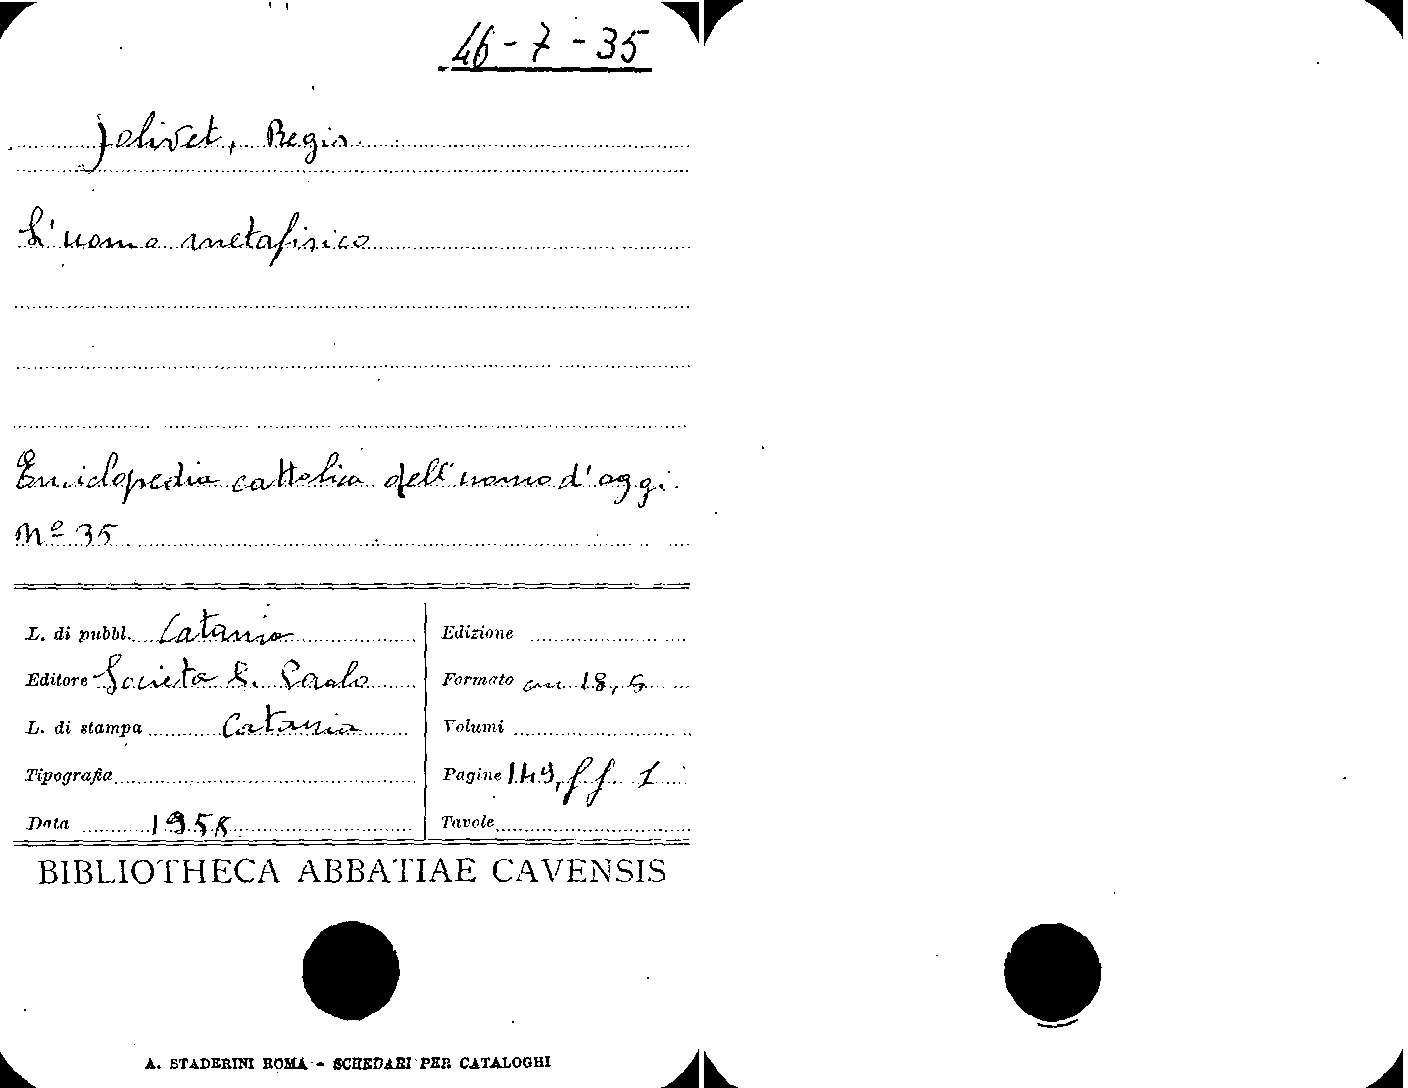 46-7-35
Jolivet, Regis
L'uomo metafisico
Enciclopedia cattolica dell'uomo d'oggi.
Nº 35
L. di pubbl. Catania
Editore Società S. Paolo
L. di stampa Catania
Tipografia
Data 1958
Edizione
Formato cm 18,5
Volumi
Pagine 149, ff 1
Tavole
BIBLIOTHECA ABBATIAE CAVENSIS
A. STADERINI ROMA - SCHEDARI PER CATALOGHI